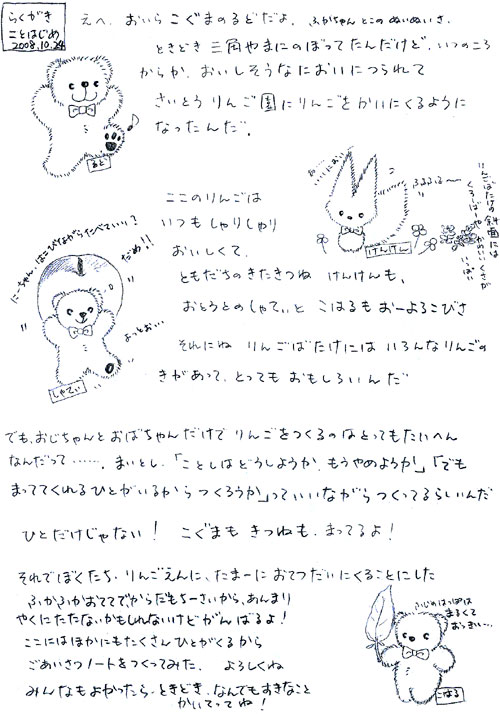 らくがき
ことはじめ
2008.10.24
えへ、おいら こぐまのるどだよ。ふかちゃんとこのぬいぬいさ。
ときどき 三角やまにのぼってたんだけど、いつのころ
からか、おいしそうなにおいにつられて
さいとうりんご園にりんごをかいにくるように
なったんだ。
ここのりんごは
いつもしゃりしゃり
おいしくて、
ともだちのきたきつね けんけんも、
おとうとのしゃてぃと こはるもおーよろこびさ
それにね りんごばたけには いろんなりんごの
きがあって、とっても おもしろいんだ
けんけん
ふるるる〜
りんごばたけの斜面には
くろーばーや かわいいくさが
いっぱい
にーちゃん、はこびながらたべていい?
だめっ!!
よっとぉ…
しゃてぃ
でも、おじちゃんと おばちゃんだけで りんごをつくるのはとってもたいへん
なんだって……。まいとし、「ことしはどうしようか、もうやめようか」「でも
まっててくれるひとがいるから つくろうか」っていいながら つくってるらしいんだ
ひとだけじゃない! こぐまも きつねも、まってるよ!
それでぼくたち、りんごえんに、たまーに おてつだいにくることにした
ふかふかおててで、からだもちーさいから、あんまり
やくにたたないかもしれないけど がんばるよ!
ここにはほかにもたくさんひとがくるから
ごあいさつノートをつくってみた。 よろしくね
みんなもよかったら、ときどき、なんでもすきなこと
かいてってね!
ふじのはっぱは
まるくて
おっきい…
こはる